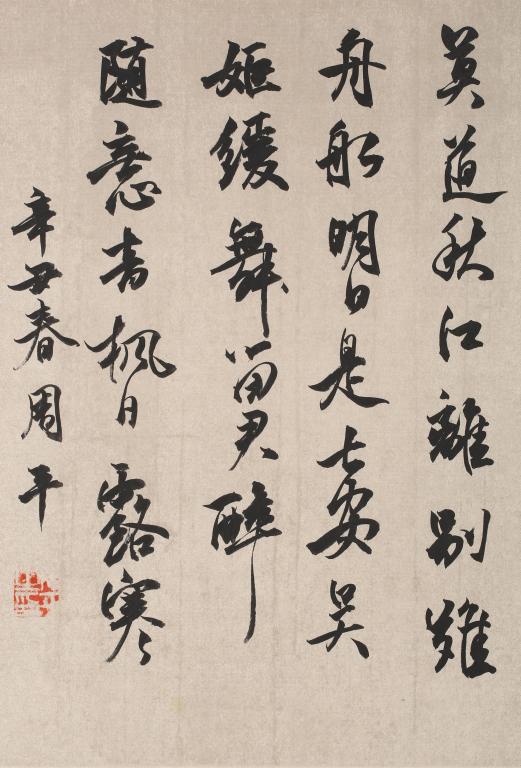 莫道秋江離別難
舟船明日是长安吴
姬緩舞留君醉
隨意青楓白露寒
辛丑春周平